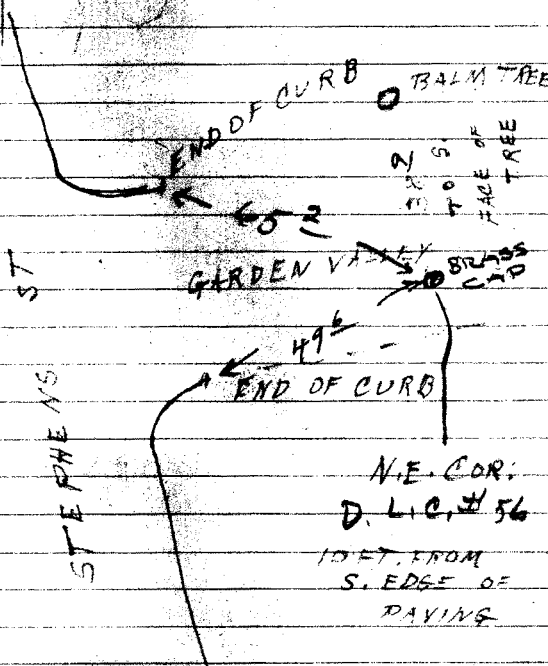 END OF CURB
BALM TREE
32 2
TO S.
FACE OF
TREE
65 2
GARDEN VALLEY
BRASS
CAP
ST
49 6
END OF CURB
STEPHENS
N.E. COR.
D. L. C. # 56
10 FT. FROM
S. EDGE OF
PAVING